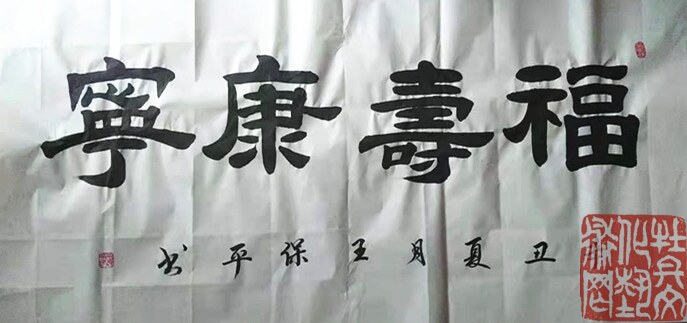 福壽康寧
丑夏月王保平书